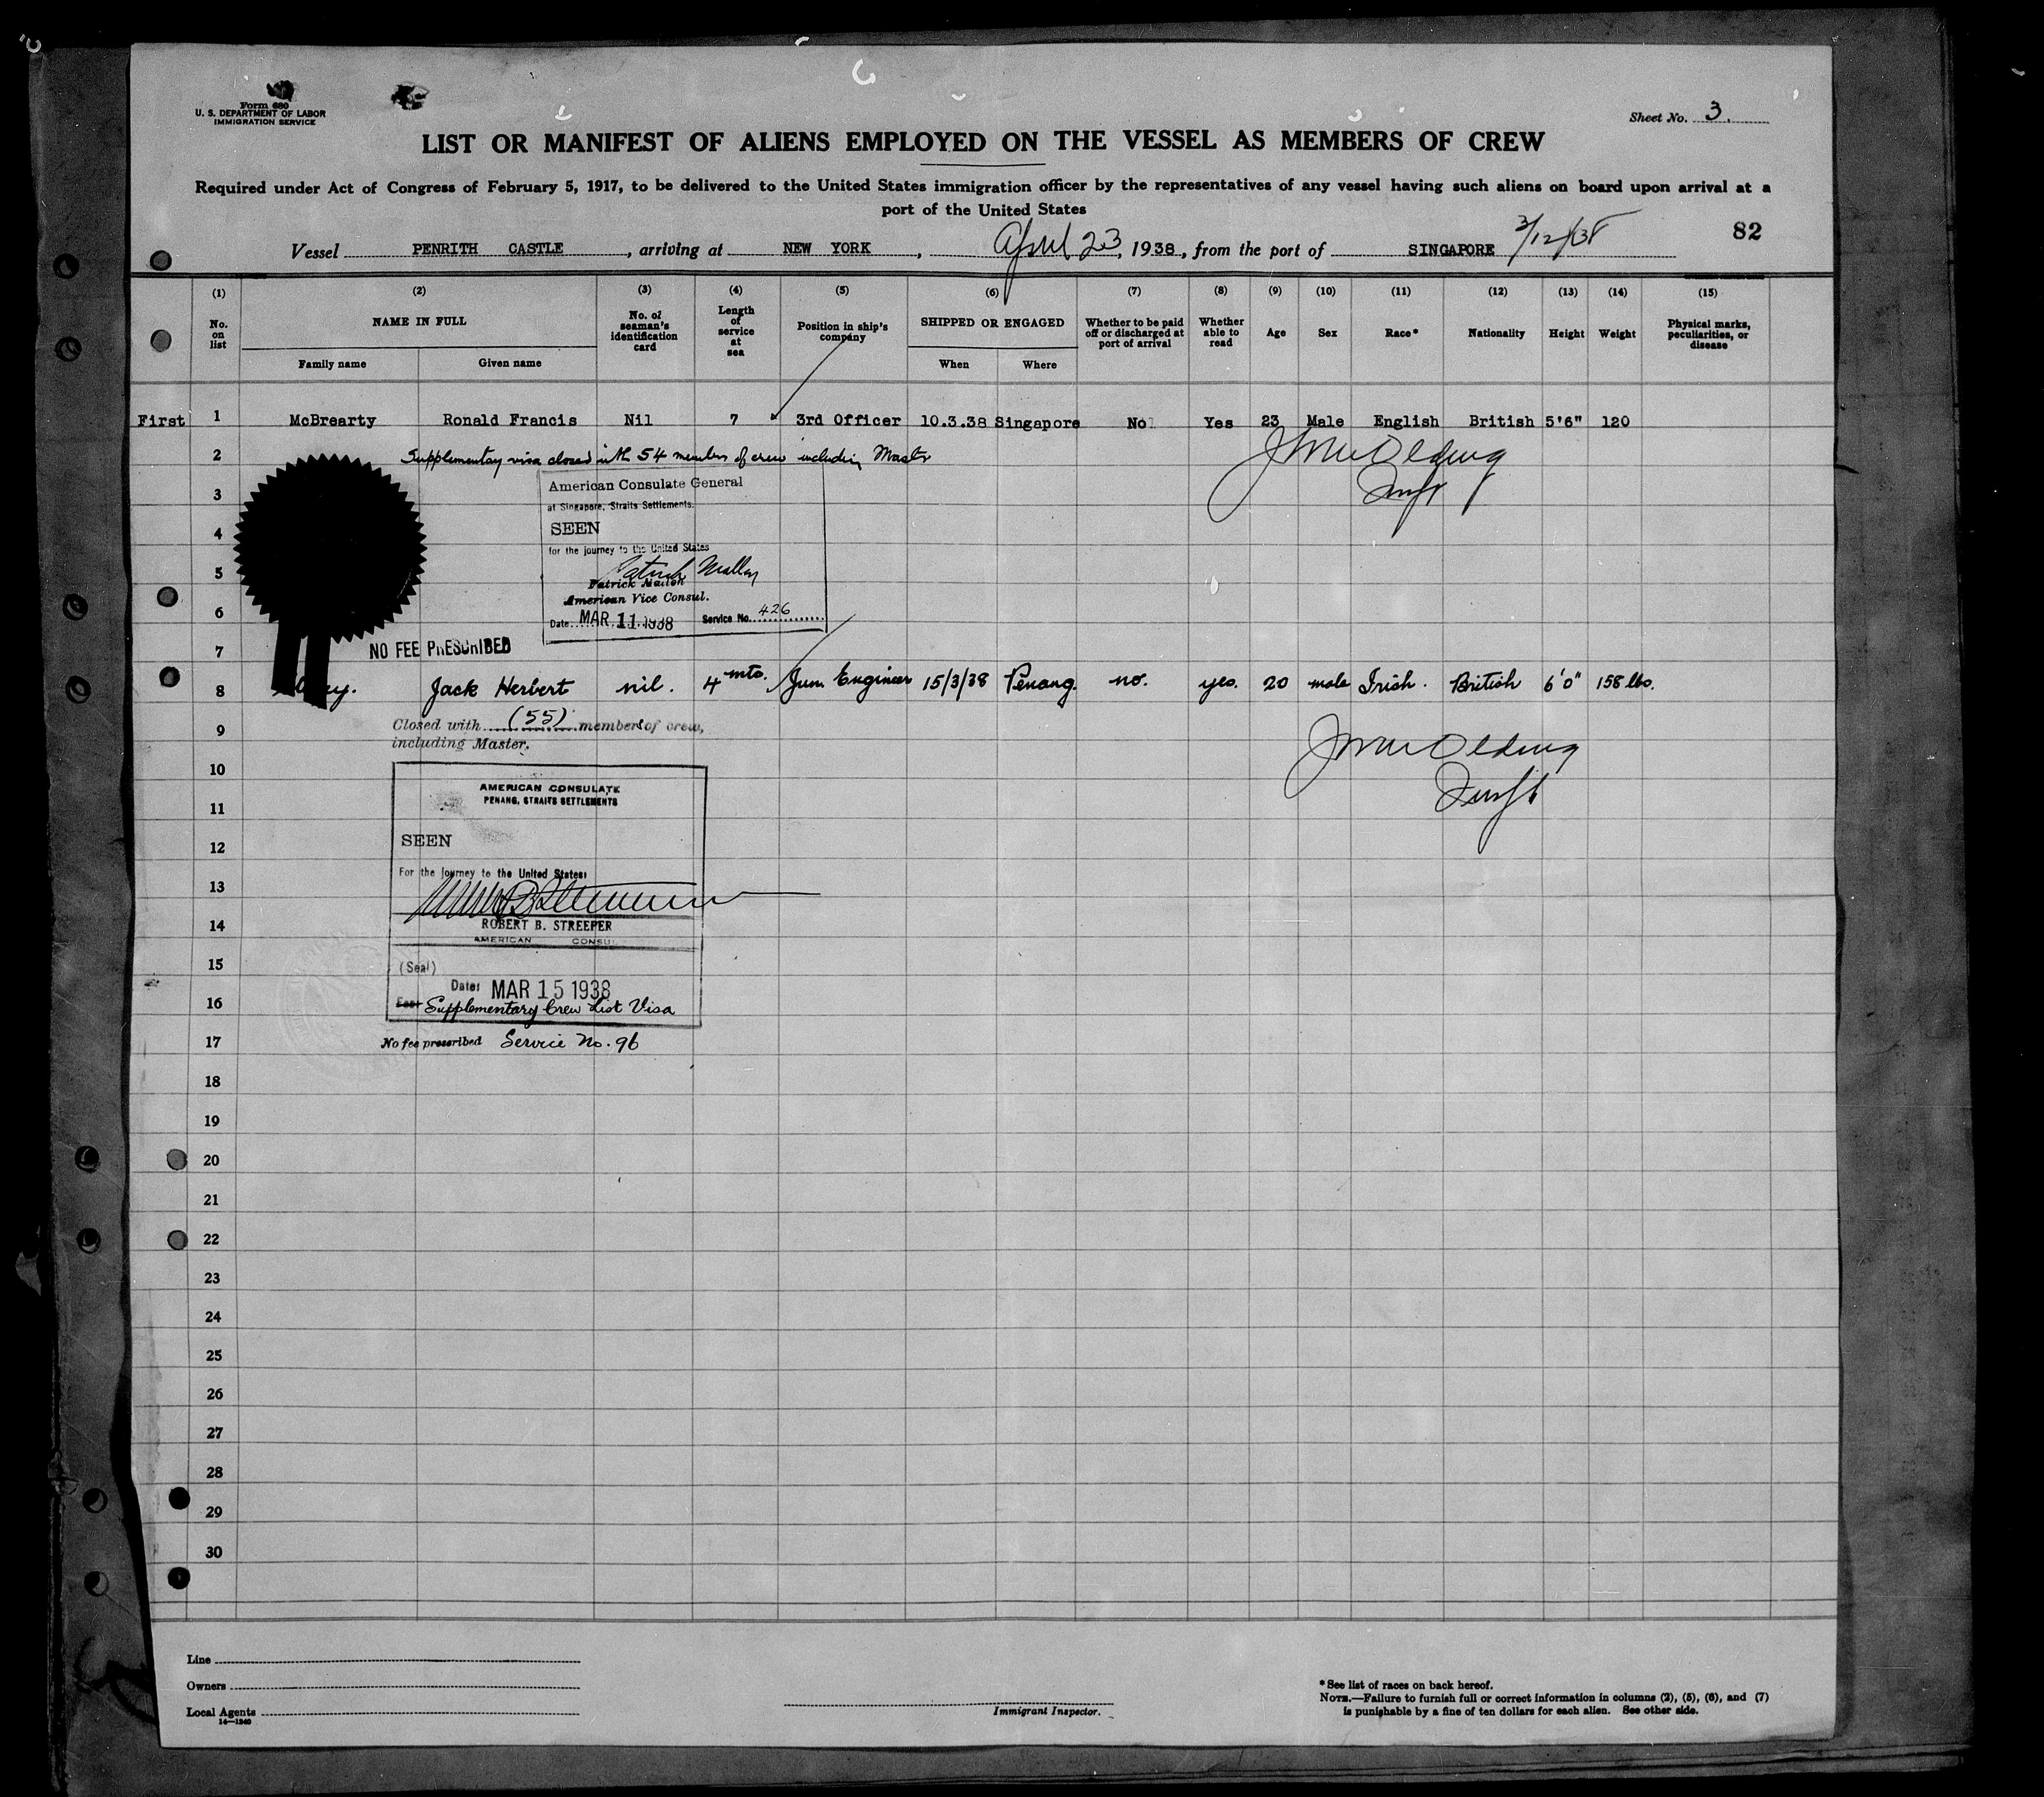 Form 680
U. S. DEPARTMENT OF LABOR
IMMIGRATION SERVICE
Sheet No. 3.
LIST OR MANIFEST OF ALIENS EMPLOYED ON THE VESSEL AS MEMBERS OF CREW
Required under Act of Congress of February 5, 1917, to be delivered to the United States immigration officer by the representatives of any vessel having such aliens on board upon arrival at a
port of the United States
82
Vessel PENRITH CASTLE, arriving at NEW YORK, April 23, 1938, from the port of SINGAPORE 3/12/38
(1) (2) (3) (4) (5) (6) (7) (8) (9) (10) (11) (12) (13) (14) (15)
No. on list
NAME IN FULL
Family name
Given name
No. of seaman's identification card
Length of service at sea
Position in ship's company
SHIPPED OR ENGAGED
When
Where
Whether to be paid off or discharged at port of arrival
Whether able to read
Age
Sex
Race*
Nationality
Height
Weight
Physical marks, peculiarities, or disease
First 1 McBrearty Ronald Francis Nil 7 3rd Officer 10.3.38 Singapore No Yes 23 Male English British 5'6" 120
2 Supplementary visa closed with 54 members of crew including Master
3
American Consulate General
at Singapore, Straits Settlements.
4
SEEN
for the journey to the United States
5
Patrick Mallon
American Vice Consul.
6
Date MAR 11 1938 Service No. 426
7
NO FEE PRESCRIBED
8 Jack Herbert nil. 4 mts. Jun. Engineer 15/3/38 Penang. no. yes. 20 male Irish. British 6'0" 158 lbs.
9
Closed with (55) members of crew,
including Master.
10
AMERICAN CONSULATE
PENANG, STRAITS SETTLEMENTS
11
12
SEEN
For the journey to the United States:
13
14
ROBERT B. STREEPER
AMERICAN CONSUL
15
(Seal)
Date: MAR 15 1938
16
Supplementary Crew List Visa
17
No fee prescribed Service No. 96
18
19
20
21
22
23
24
25
26
27
28
29
30
Line
Owners
Local Agents
14—1240
Immigrant Inspector.
*See list of races on back hereof.
NOTE.—Failure to furnish full or correct information in columns (2), (5), (6), and (7)
is punishable by a fine of ten dollars for each alien. See other side.